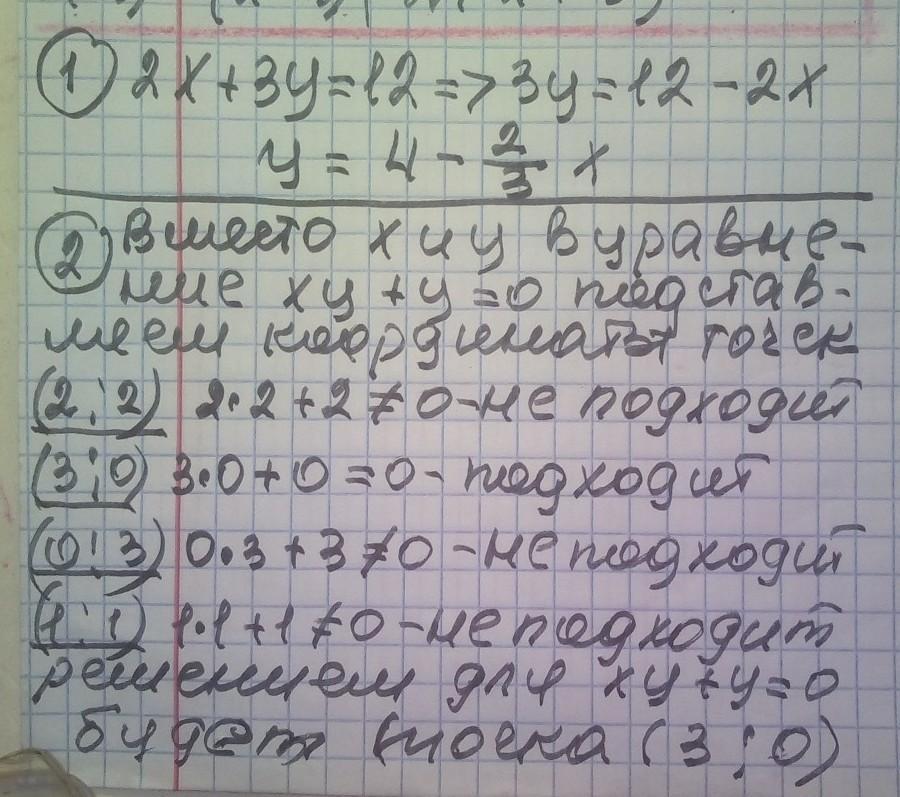 ① 2x+3y=12=>3y=12-2x
y = 4 - 2/3 x
② Вместо x и y в уравне-
ние xy+y=0 подстав-
ляем координаты точек
(2;2) 2·2+2≠0-не подходит
(3;0) 3·0+0=0- подходит
(0;3) 0·3+3≠0-не подходит
(1;1) 1·1+1≠0-не подходит
решением для xy+y=0
будет точка (3;0)